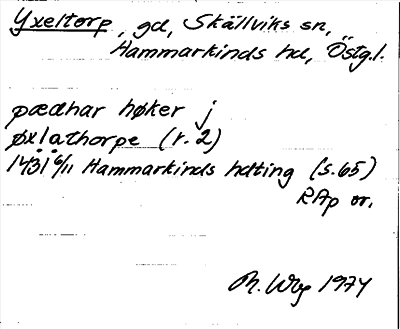 Yxeltorp, gd, Skällviks sn,
Hammarkinds hd, Östg.l.
pædhar høker j
øxlathorpe (r. 2)
1431 6/11 Hammarkinds hdting (s. 65)
RAp or.
1974